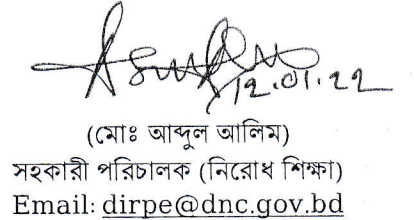 12.01.22
(মোঃ আব্দুল আলিম)
সহকারী পরিচালক (নিরোধ শিক্ষা)
Email: dirpe@dnc.gov.bd